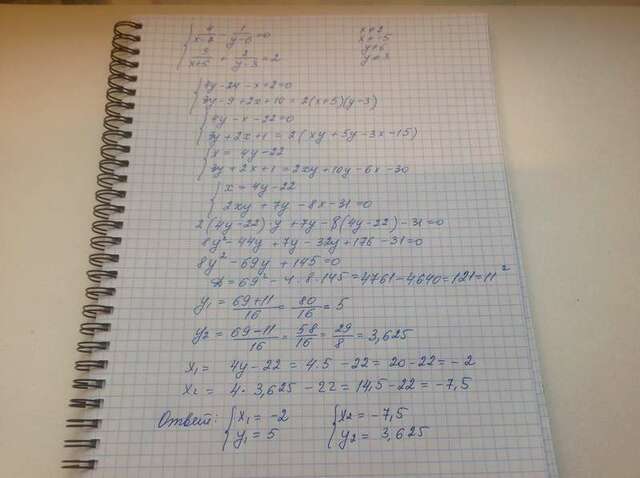 { 4/(x-2) - 1/(y-6) = 0    x≠2
x≠-5
{ 3/(x+5) + 2/(y-3) = 2    y≠6
y≠3
{ 4y-24-x+2=0
{ 3y-9+2x+10=2(x+5)(y-3)
{ 4y-x-22=0
{ 3y+2x+1=2(xy+5y-3x-15)
{ x=4y-22
{ 3y+2x+1=2xy+10y-6x-30
{ x=4y-22
{ 2xy+7y-8x-31=0
2(4y-22)·y+7y-8(4y-22)-31=0
8y²-44y+7y-32y+176-31=0
8y²-69y+145=0
D=69²-4·8·145=4761-4640=121=11²
y₁=(69+11)/16=80/16=5
y₂=(69-11)/16=58/16=29/8=3,625
x₁=4y-22=4·5-22=20-22=-2
x₂=4·3,625-22=14,5-22=-7,5
Ответ: { x₁=-2    { x₂=-7,5
{ y₁=5    { y₂=3,625